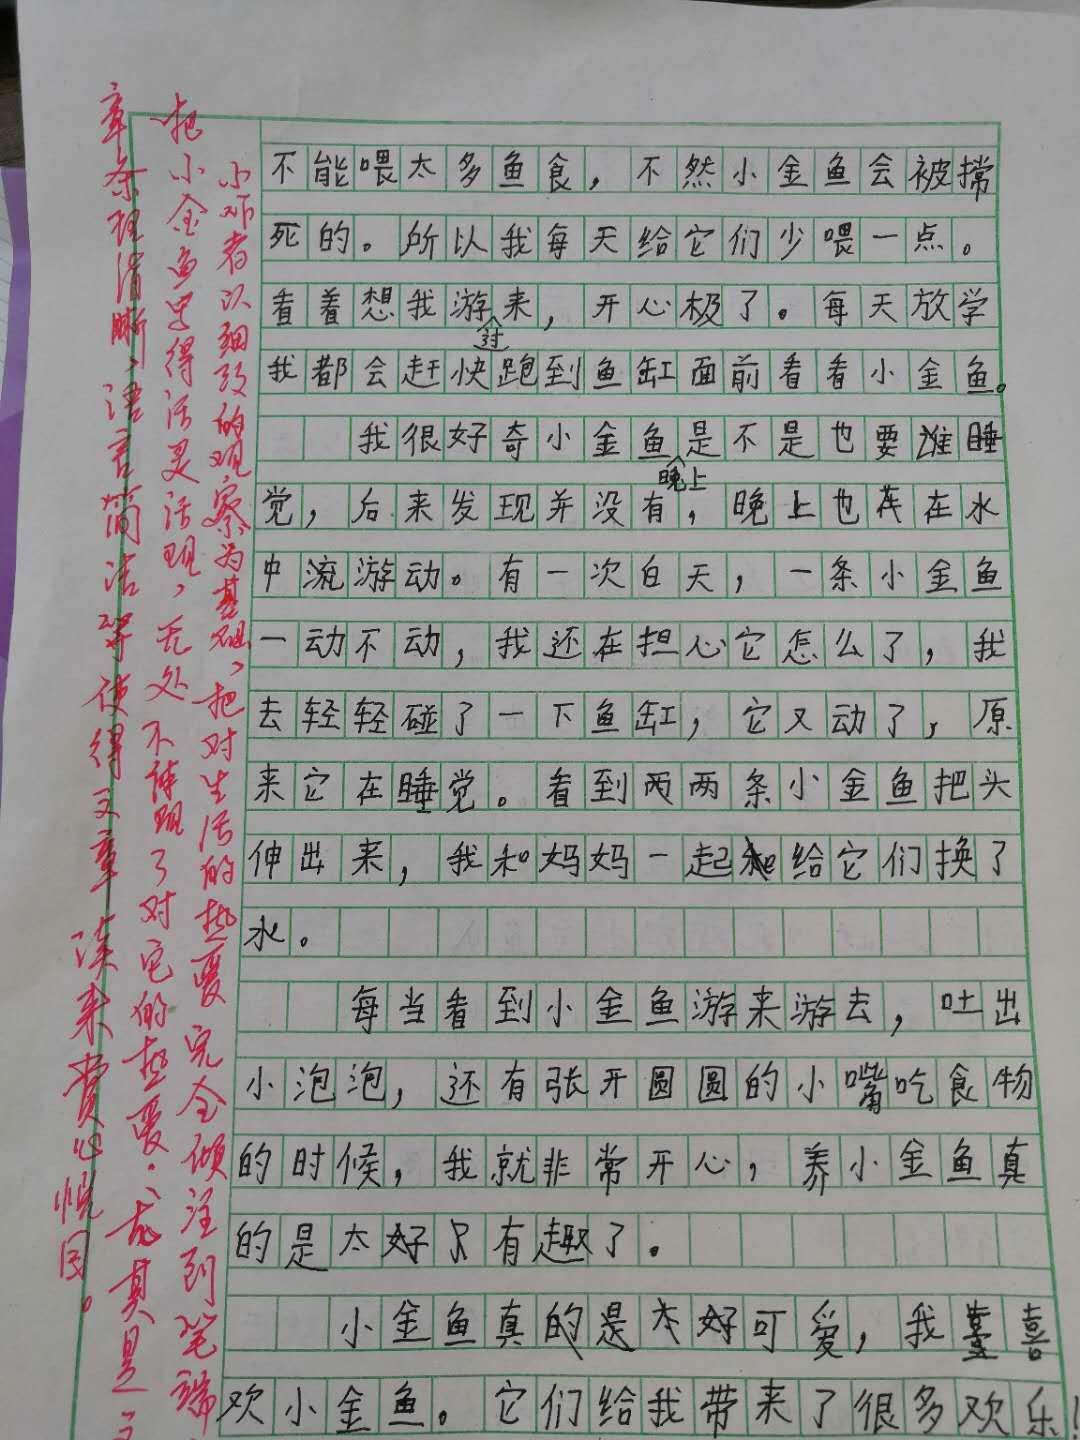 不能喂太多鱼食，不然小金鱼会被撑
死的。所以我每天给它们少喂一点。
看着想我游来，开心极了。每天放学
过
我都会赶快跑到鱼缸面前看看小金鱼。
我很好奇小金鱼是不是也要睡
晚上
觉，后来发现并没有，晚上也在水
中流游动。有一次白天，一条小金鱼
一动不动，我还在担心它怎么了，我
去轻轻碰了一下鱼缸，它又动了，原
来它在睡觉。看到两两条小金鱼把头
伸出来，我和妈妈一起给它们换了
水。
每当看到小金鱼游来游去，吐出
小泡泡，还有张开圆圆的小嘴吃食物
的时候，我就非常开心，养小金鱼真
的是太好只有趣了。
小金鱼真的是太好可爱，我喜
欢小金鱼。它们给我带来了很多欢乐！
小作者以细致的观察为基础，把对生活的热爱完全倾注到笔端
把小金鱼写得活灵活现，无处不体现了对它的热爱。尤其是文
章条理清晰，语言简洁等使得文章读来赏心悦目。